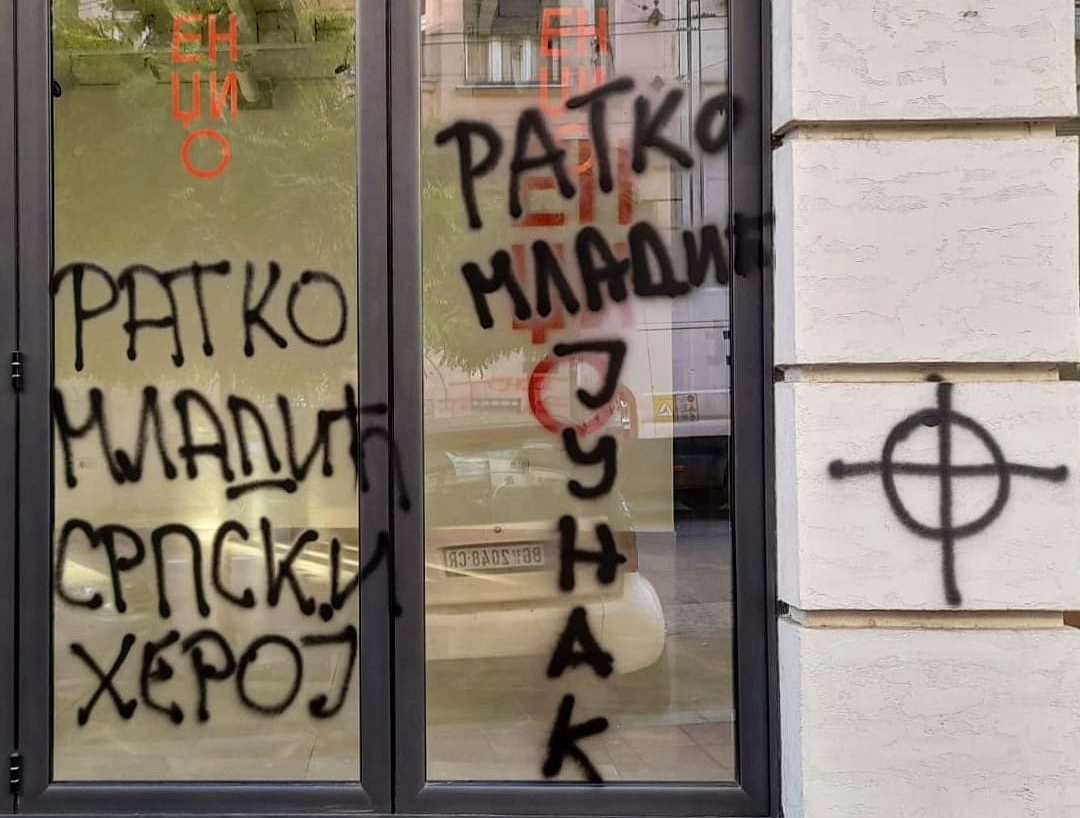 ЕН
ЏИ
О
РАТКО
МЛАДИЋ
СРПСКИ
ХЕРОЈ
ЕН
ЏИ
О
РАТКО
МЛАДИЋ
Ј
У
Н
А
К